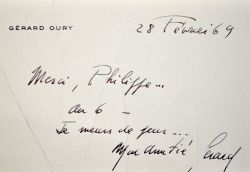 GÉRARD OURY
28 Février 69
Merci, Philippe...
au 6 —
Je meurs de peur ---
Mon amitié, Gérard